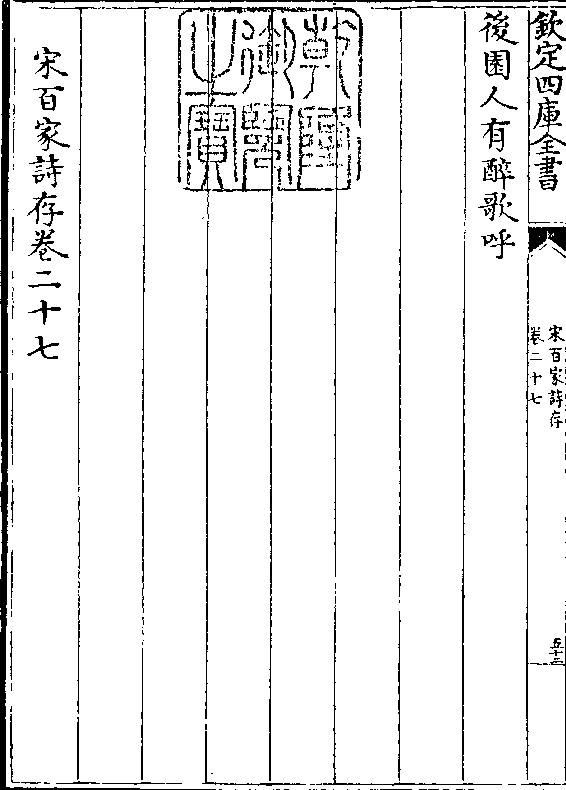 欽定四庫全書
宋百家詩存
卷二十七
五十三
後園人有醉歌呼
乾隆
御覽
之寶
宋百家詩存卷二十七